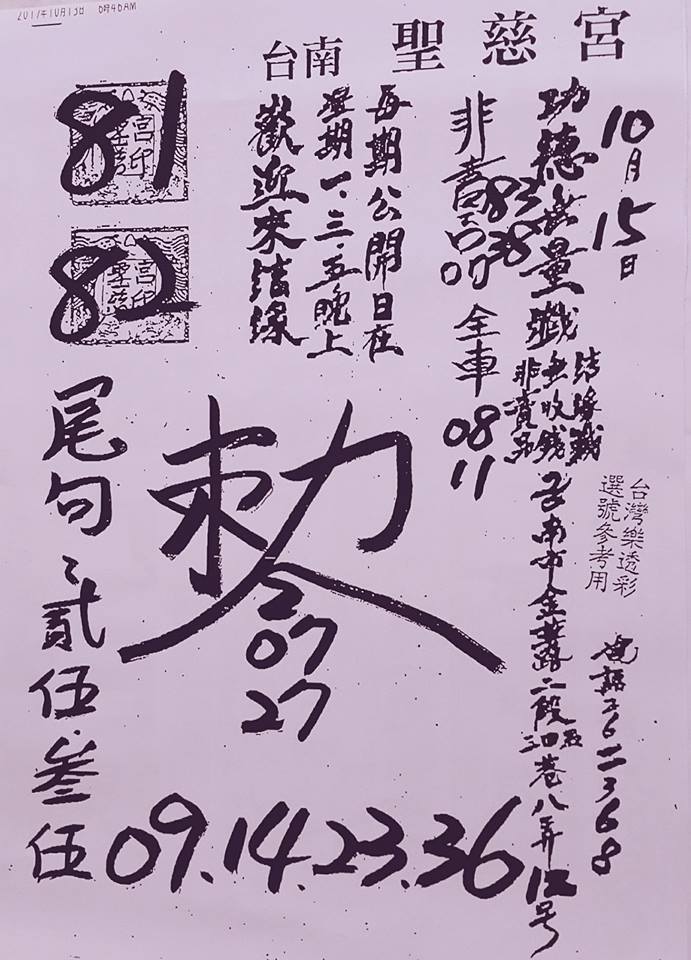 2017年10月13日 6時46AM
台南 聖慈宮
10月15日
功德無量
結緣籤
無收錢
非賣品
台南市金華路二段
八弄12号
台灣樂透彩
選號參考用
電話
非賣品
83
38
07
全車
08
11
每期公開日在
星期一、三、五晚上
歡迎來結緣
81
82
敕令
07
27
尾句:貳伍.叁伍
09.14.23.36